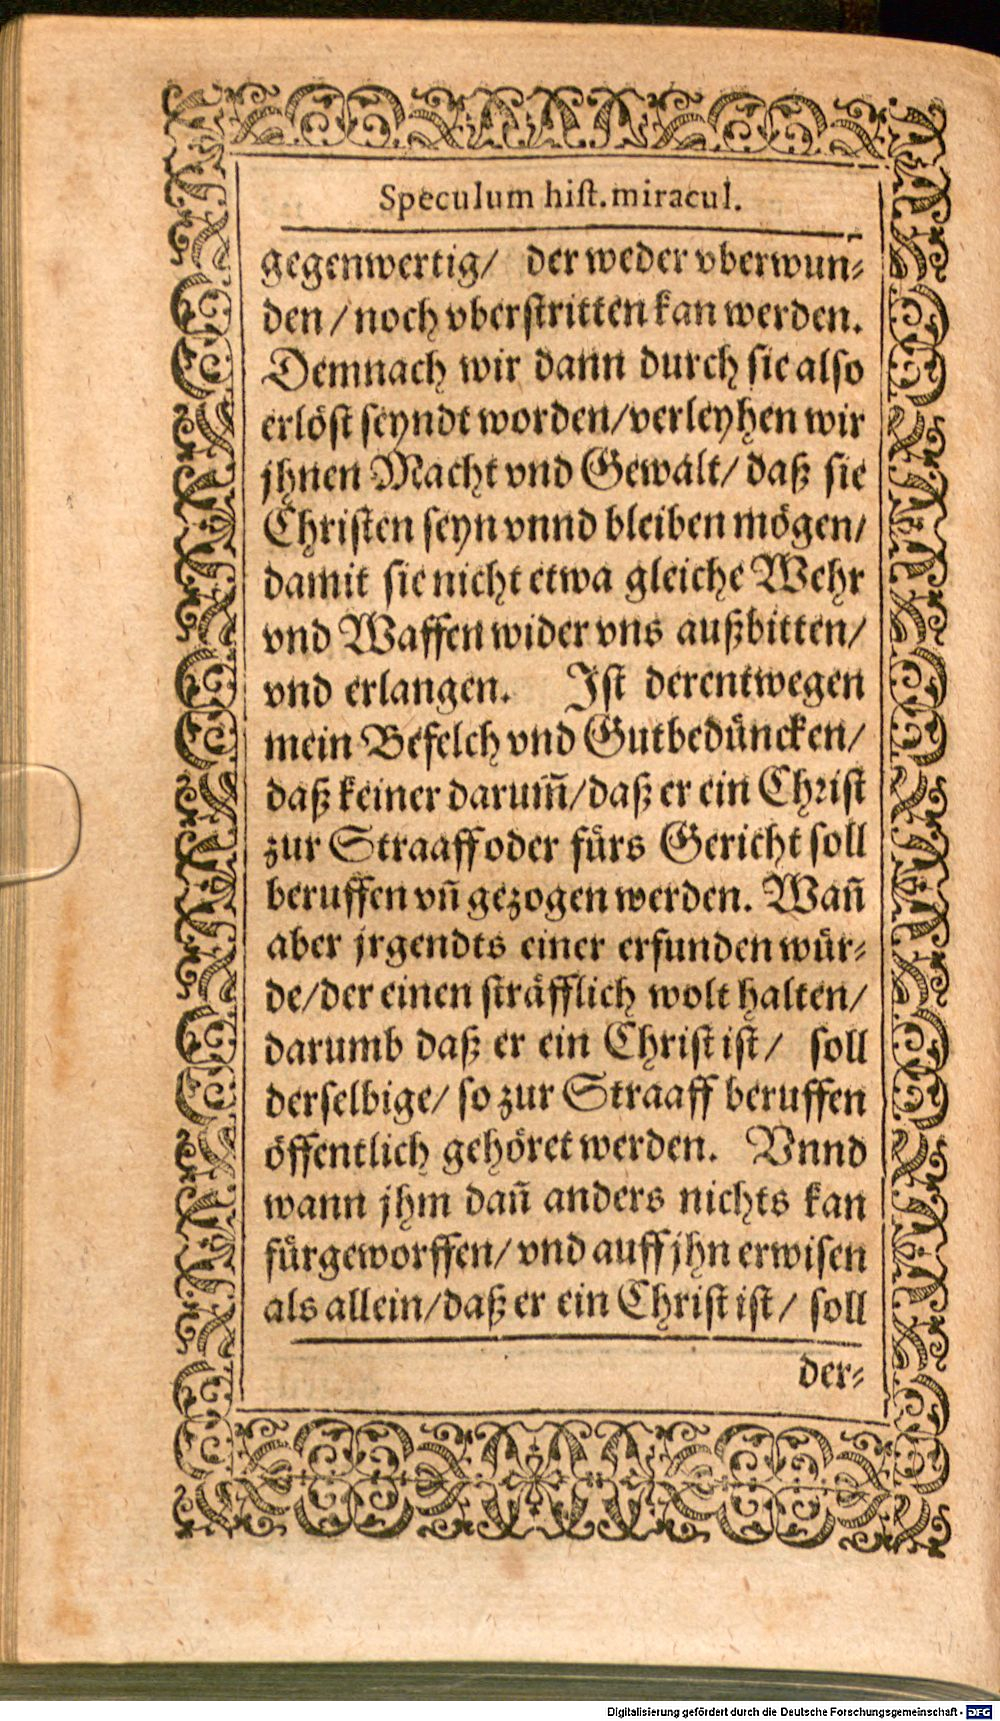 Speculum hiſt. miracul.
gegenwertig/ der weder vberwun⸗
den/ noch vberſtritten kan werden.
Demnach wir dann durch ſie alſo
erlöſt ſeyndt worden/ verleyhen wir
jhnen Macht vnd Gewalt/ daß ſie
Chriſten ſeyn vnnd bleiben mögen/
damit ſie nicht etwa gleiche Wehr
vnd Waffen wider vns außbitten/
vnd erlangen. Iſt derentwegen
mein Befelch vnd Gutbedüncken/
daß keiner darum̃/ daß er ein Chꝛiſt
zur Straaff oder fürs Gericht ſoll
beruffen vñ gezogen werden. Wañ
aber jrgendts einer erfunden wür⸗
de/ der einen ſträfflich wolt halten/
darumb daß er ein Chriſt iſt/ ſoll
derſelbige/ ſo zur Straaff beruffen
öffentlich gehöret werden. Vnnd
wann jhm dañ anders nichts kan
fürgeworffen/ vnd auff jhn erwiſen
als allein/ daß er ein Chriſt iſt/ ſoll
der⸗
Digitalisierung gefördert durch die Deutsche Forschungsgemeinschaft - DFG